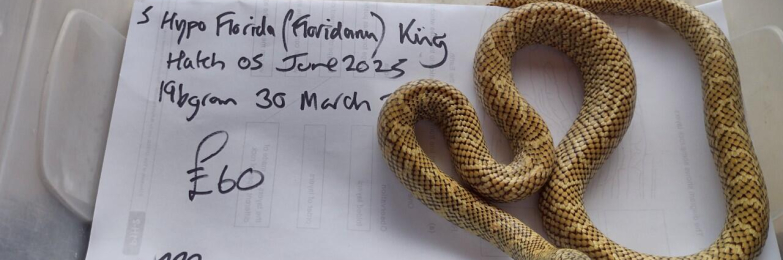 5 Hypo Florida (Floridana) King
Hatch 05 June 2025
196gram 30 March
£60